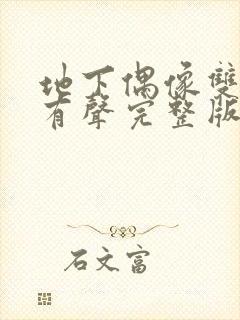 地下偶像雙
有聲完整版
石文富